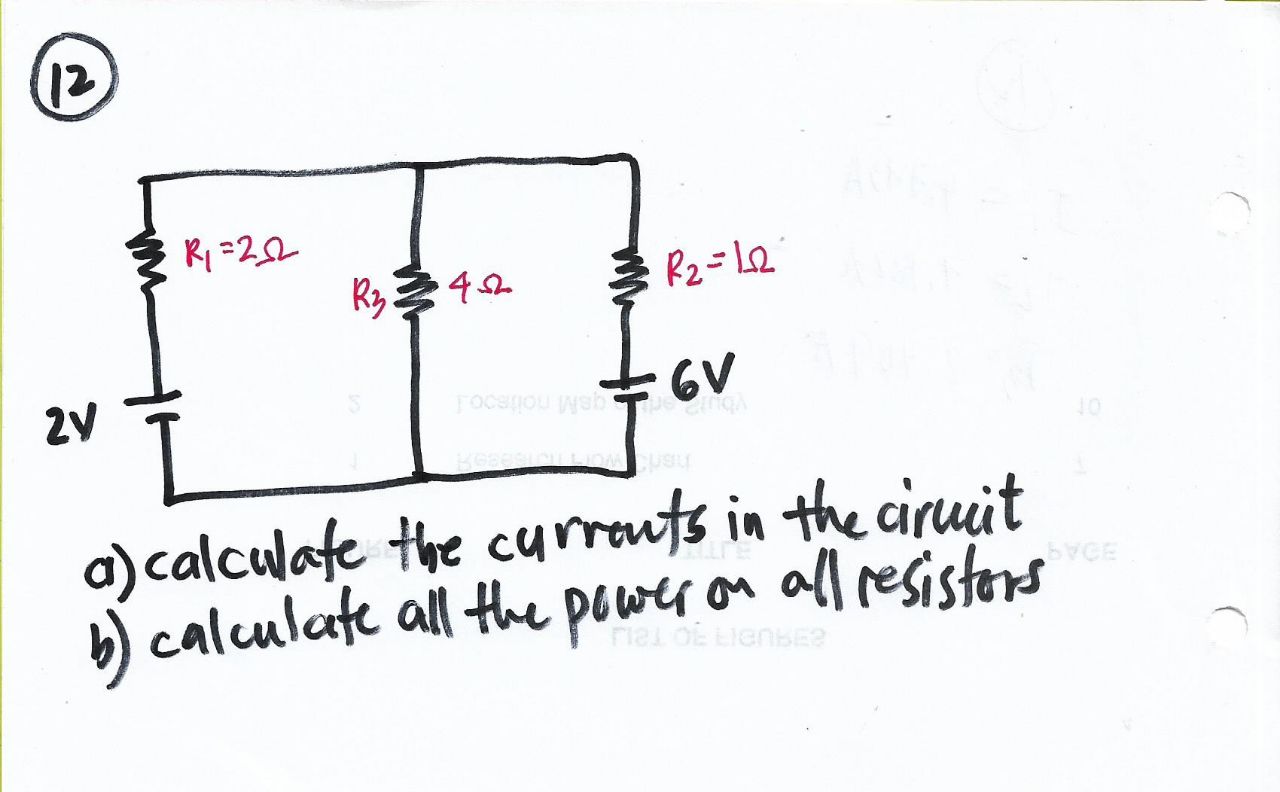 12
R₁=2Ω
R₃ 4Ω
R₂=1Ω
2V
6V
a) calculate the currents in the circuit
b) calculate all the power on all resistors